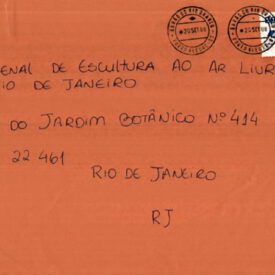 ENAL DE ESCULTURA AO AR LIVR
IO DE JANEIRO
DO JARDIM BOTÂNICO Nº 414
22461
RIO DE JANEIRO
RJ